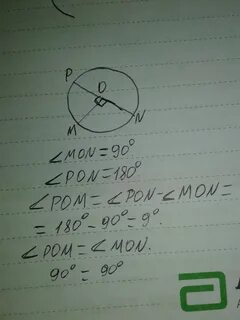 P
O
M
N
∠MON=90°
∠PON=180°
∠POM=∠PON-∠MON=
=180°-90°=9°
∠POM=∠MON.
90°=90°